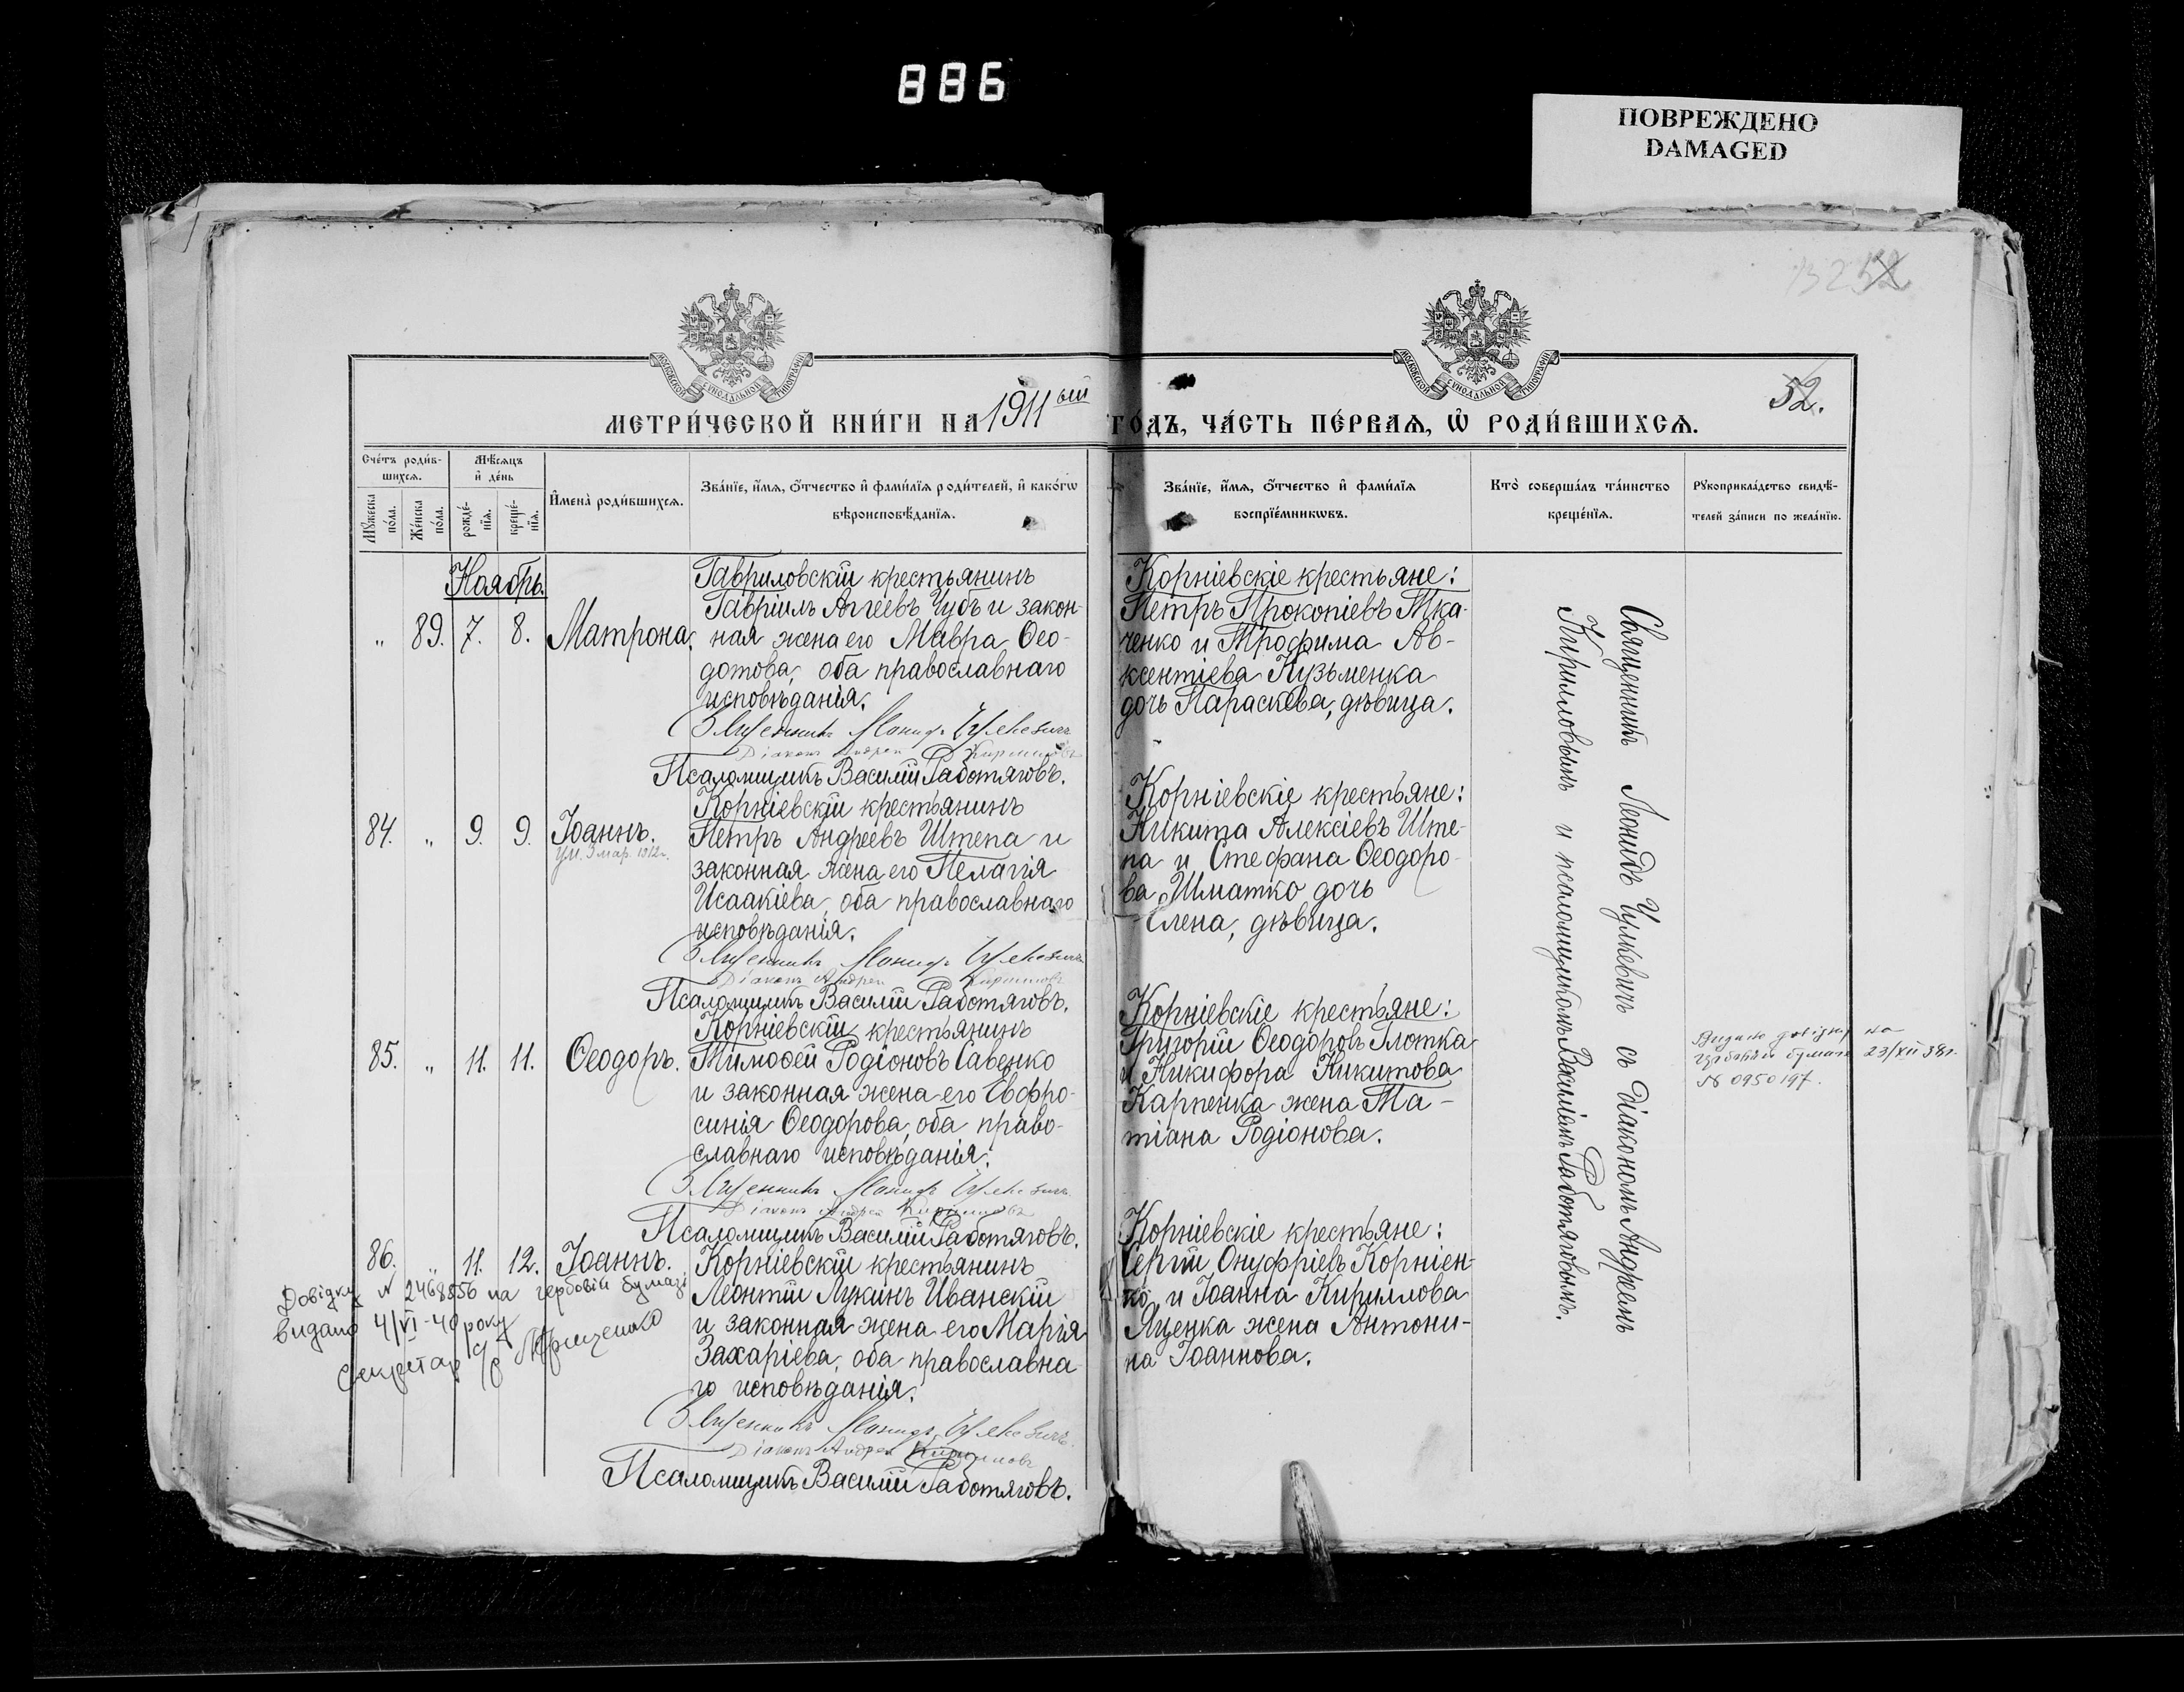 886
ПОВРЕЖДЕНО
DAMAGED
52.
МЕТРИ́ЧЕСКОЙ КНИ́ГИ НА 1911ый ГО́ДЪ, ЧА́СТЬ ПЕ́РВАѦ, Ѡ҆ РОДИ́ВШИХСѦ.
Сче́тъ роди́в-
шихсѧ.
Мꙋ́жеска по́ла.
Же́нска по́ла.
Мѣ́сѧцъ и҆ де́нь
рожде́-нїѧ.
креще́-нїѧ.
И҆мена̀ роди́вшихсѧ.
Зва́нїе, и҆́мѧ, ѻ҆́тчество и҆ фами́лїѧ роди́телей, и҆ како́гѡ
вѣроисповѣ́данїѧ.
Зва́нїе, и҆́мѧ, ѻ҆́тчество и҆ фами́лїѧ
воспрїе́мникѡвъ.
Кто̀ соверша́лъ та́инство
креще́нїѧ.
Рꙋкоприкла́дство свидѣ́-
телей за́писи по жела́нїю.
Ноябрь.
„ 89. 7. 8. Матрона.
Гавриловскій крестьянинъ
Гавріилъ Аггеевъ Чубъ и закон-
ная жена его Мавра Ѳео-
дотова, оба православнаго
исповѣданія.
Священникъ Леонидъ Цулкевичъ
Діаконъ Андрей Кирилловъ
Псаломщикъ Василій Работяговъ.
Корніевскіе крестьяне:
Петръ Прокопіевъ Тка-
ченко и Трофима Ав-
ксентіева Кузьменка
дочь Параскева, дѣвица.
84. „ 9. 9. Іоаннъ.
Ум. 3 мар. 1912 г.
Корніевскій крестьянинъ
Петръ Андреевъ Штепа и
законная жена его Пелагія
Исаакіева, оба православнаго
исповѣданія.
Священникъ Леонидъ Цулкевичъ
Діаконъ Андрей Кирилловъ
Псаломщикъ Василій Работяговъ.
Корніевскіе крестьяне:
Никита Алексіевъ Ште-
па и Стефана Ѳеодоро-
ва Шматко дочь
Елена, дѣвица.
85. „ 11. 11. Ѳеодоръ.
Корніевскій крестьянинъ
Тимоѳей Родіоновъ Савенко
и законная жена его Евфро-
синія Ѳеодорова, оба право-
славнаго исповѣданія.
Священникъ Леонидъ Цулкевичъ
Діаконъ Андрей Кирилловъ
Псаломщикъ Василій Работяговъ.
Корніевскіе крестьяне:
Григорій Ѳеодоровъ Глотка
и Никифора Никитова
Карпенка жена Та-
тіана Родіонова.
Видано довідку на
гербовій бумазі 23/XII 38 г.
№ 0950197.
86. „ 11. 12. Іоаннъ.
Довідку № 2468556 на гербовій бумазі
видано 4/VI-40 року
Секретар с/р
Корніевскій крестьянинъ
Леонтій Лукинъ Иванскій
и законная жена его Марія
Захаріева, оба православна-
го исповѣданія.
Священникъ Леонидъ Цулкевичъ
Діаконъ Андрей Кирилловъ
Псаломщикъ Василій Работяговъ.
Корніевскіе крестьяне:
Сергій Онуфріевъ Корніен-
ко и Іоанна Кириллова
Яценка жена Антони-
на Іоаннова.
Священникъ Леонидъ Цулкевичъ съ діакономъ Андреемъ
Кирилловымъ и псаломщикомъ Василіемъ Работяговымъ.